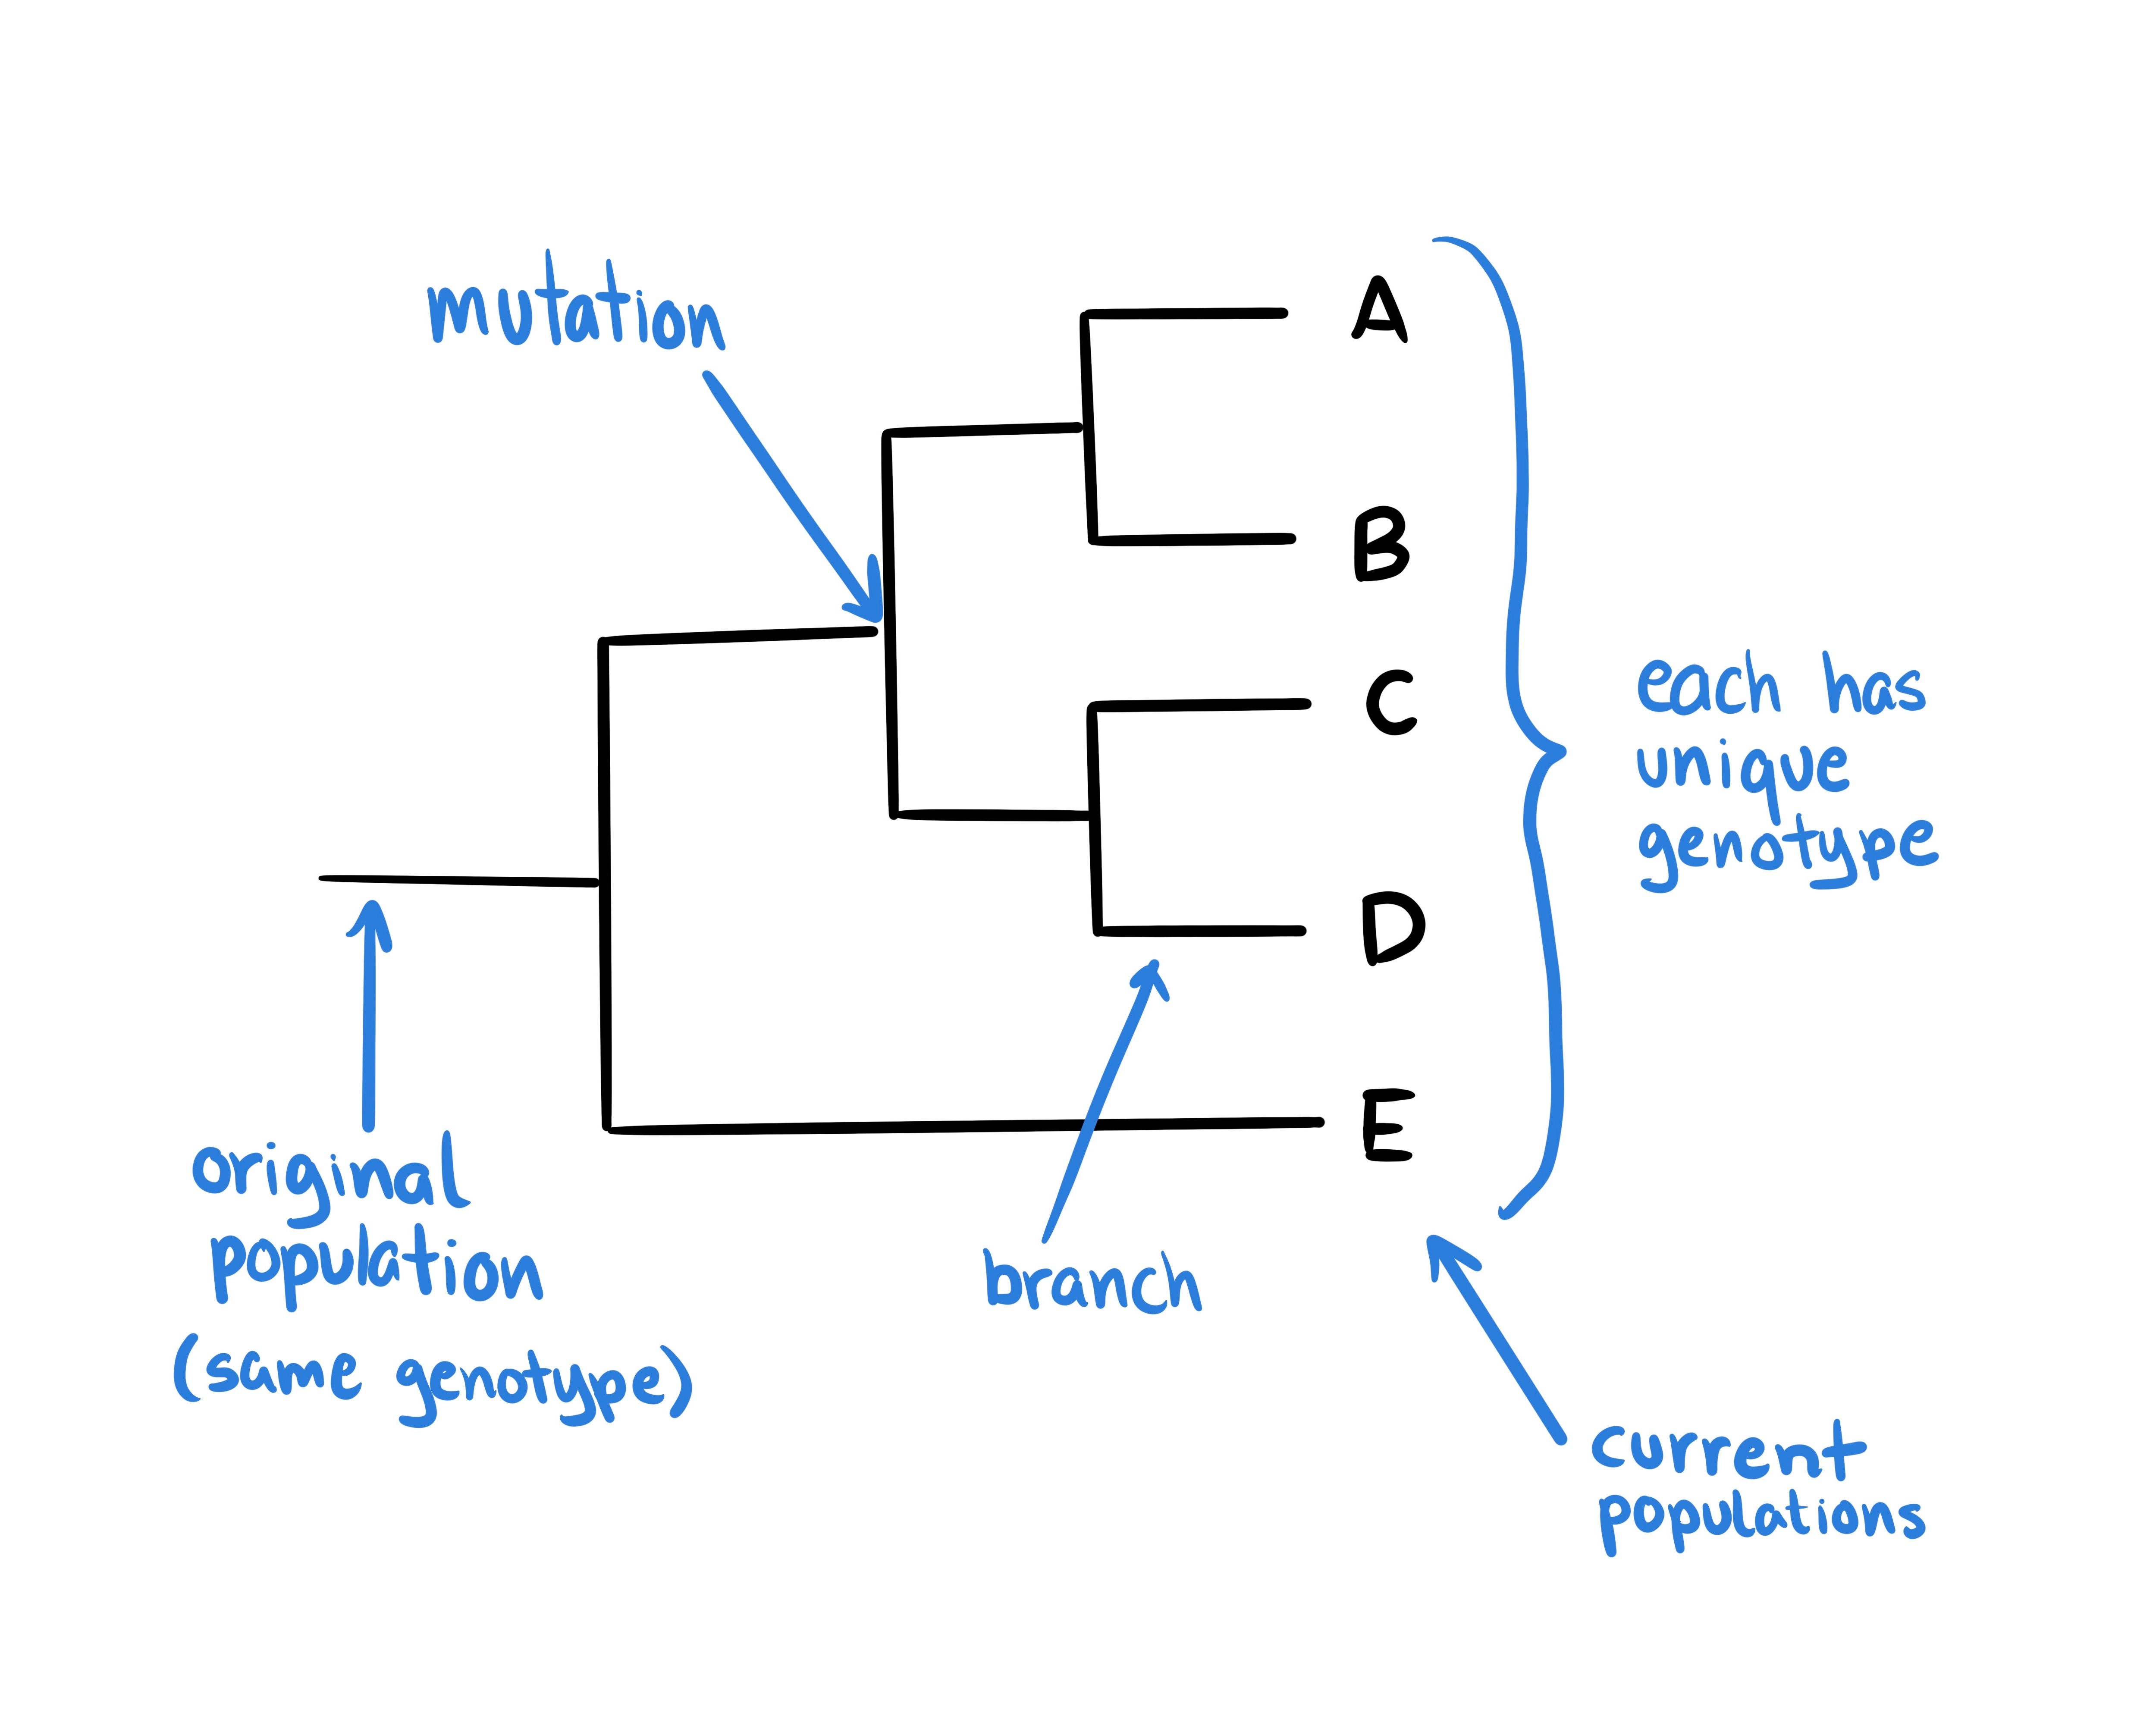 mutation
A
B
C
D
E
each has
unique
genotype
original
population
(same genotype)
branch
current
populations